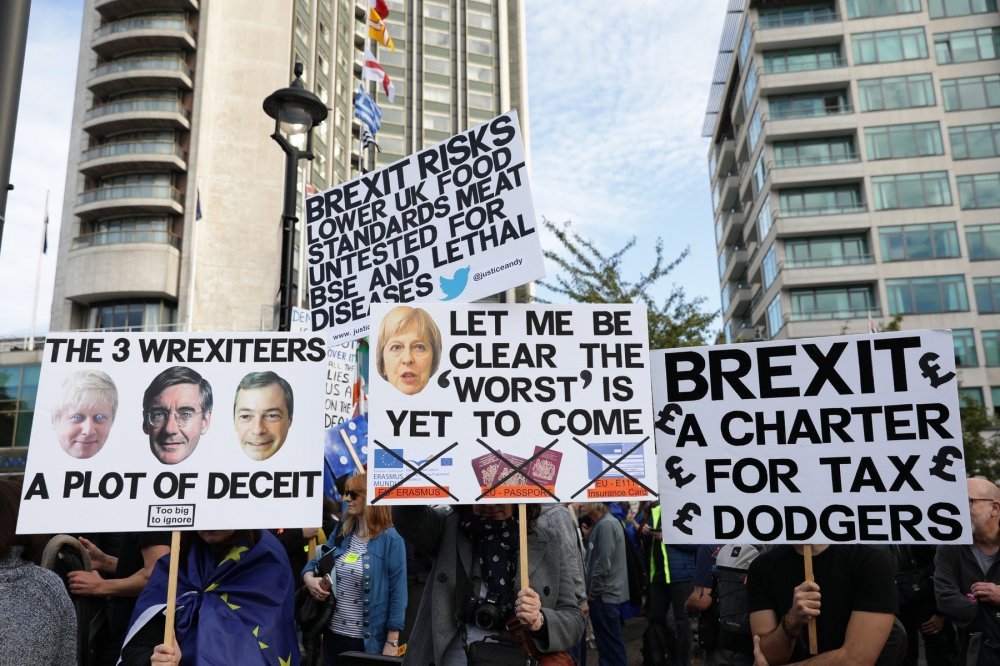 BREXIT RISKS
LOWER UK FOOD
STANDARDS MEAT
UNTESTED FOR
BSE AND LETHAL
DISEASES
@justiceandy
THE 3 WREXITEERS
A PLOT OF DECEIT
Too big
to ignore
LET ME BE
CLEAR THE
'WORST' IS
YET TO COME
EU - ERASMUS
EU - PASSPORT
EU - E111
Insurance Card
BREXIT £
£A CHARTER
£ FOR TAX £
£ DODGERS
OVER IT
ALL THE
LIES
US A
ON THE